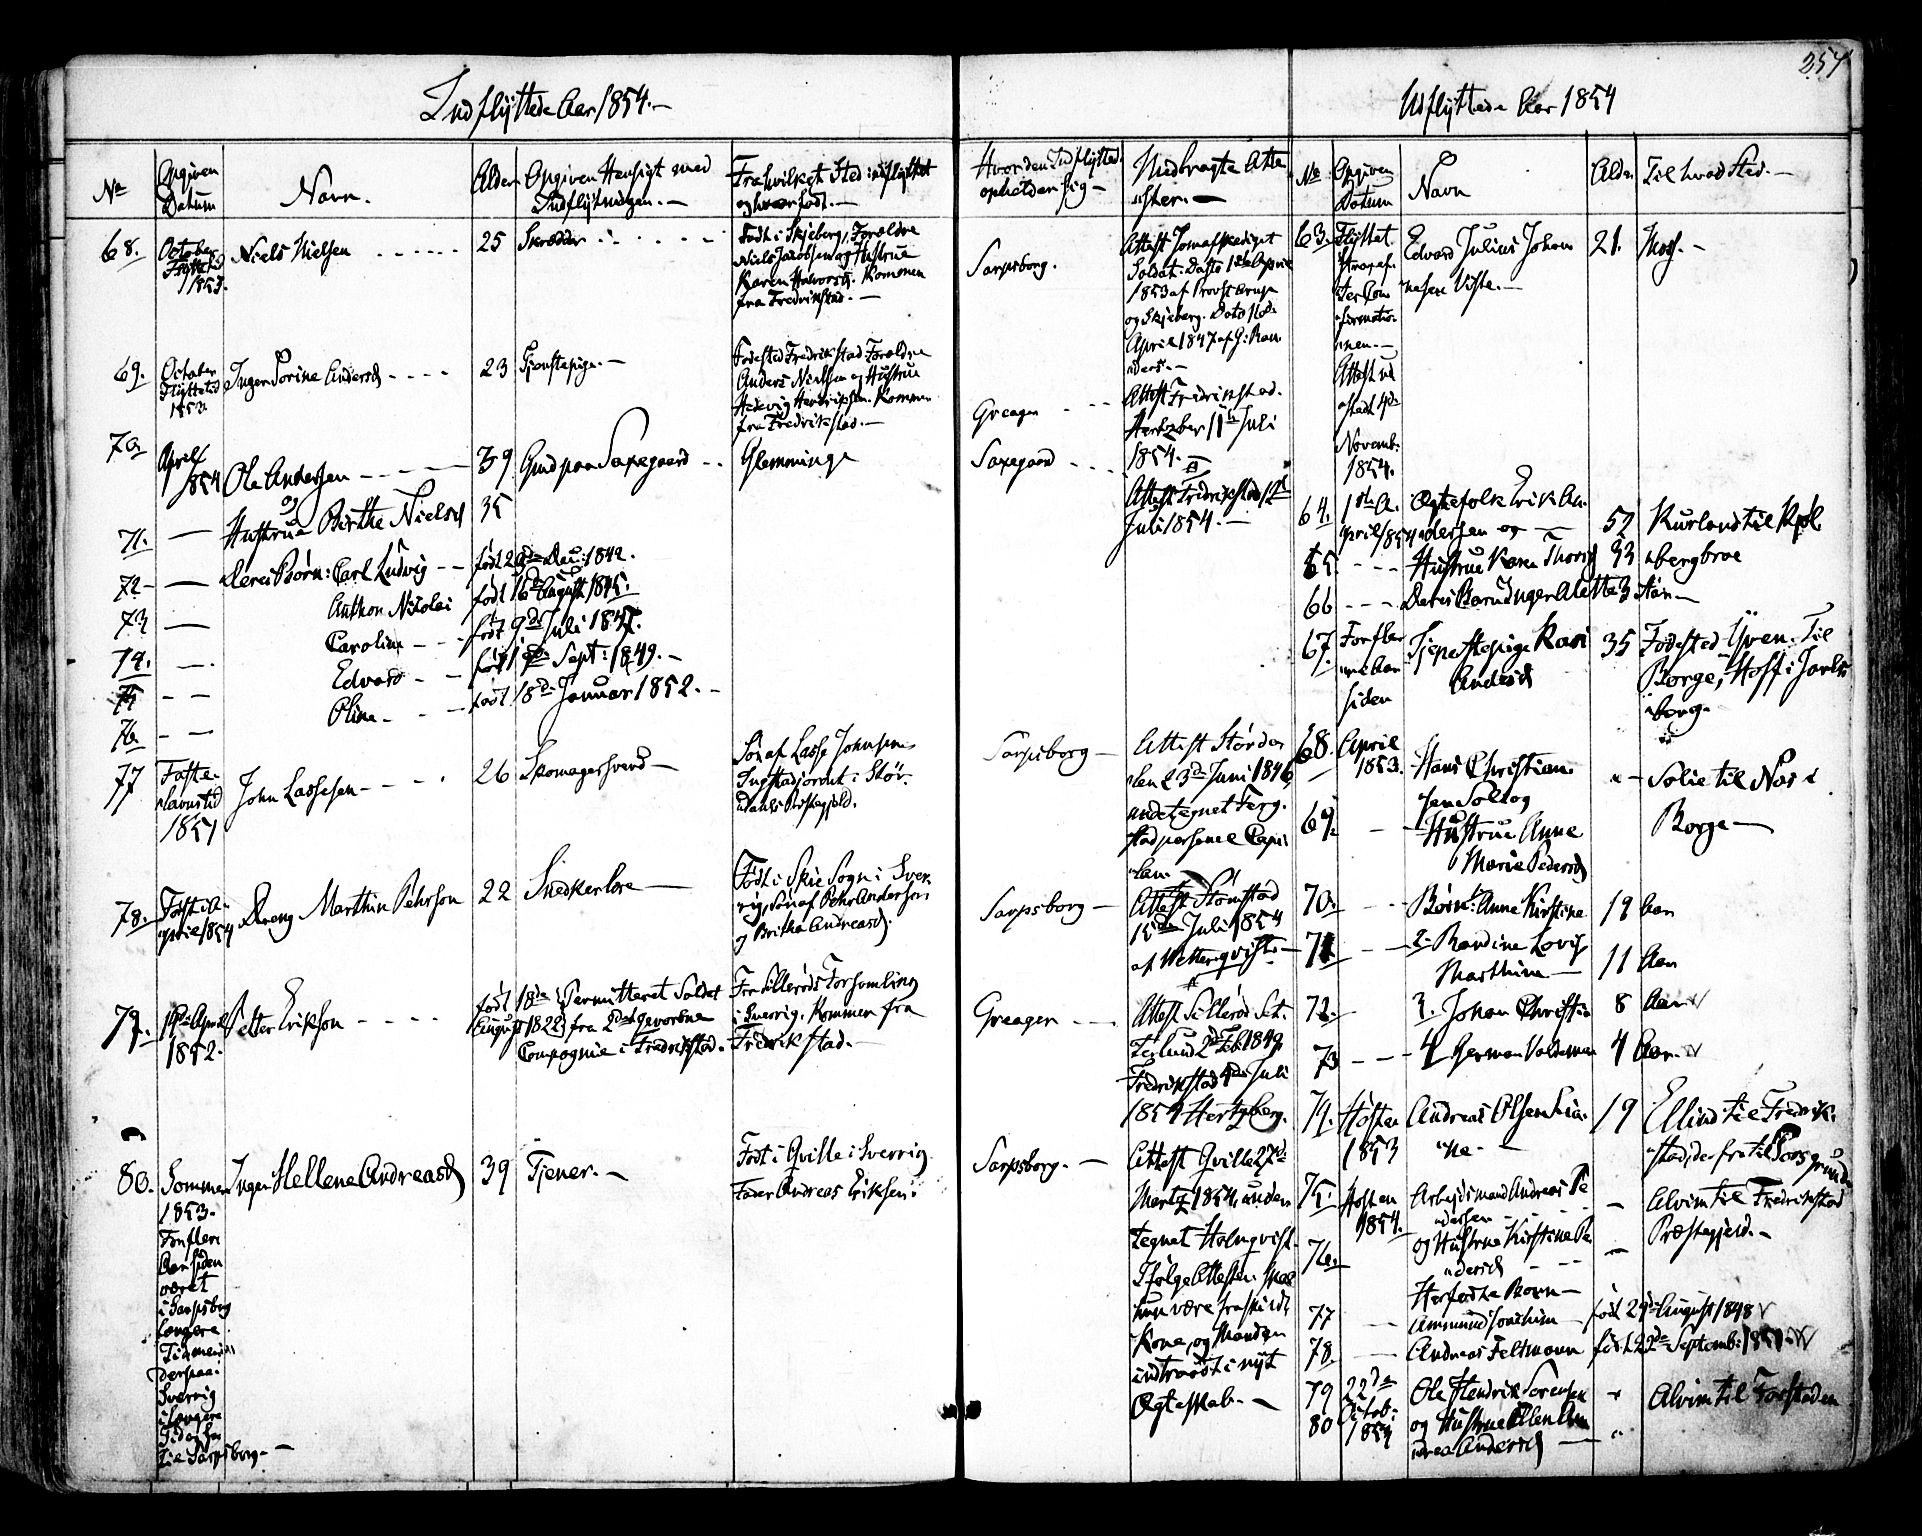 257
Indflyttede Aar 1854.-
Udflyttede Aar 1854
No
Opgiven
Datum
Navn.
Alder
Opgiven Hensigt med
Indflytningen.-
Fra hvilket Sted indflyttet
og hvor født.-
Hvor den Indflyttede
opholder sig-
Medbragte Atte
ster.-
68.
October
1853.
Niels Nielsen
25
Skrædder
Født i Skjeberg, Forældre
Niels Jacobsen og Hustrue
Karen Halvorsd. Kommen
fra Fredrikstad.-
Sarpsborg.
Soldat. Dato 1ste April
1853 af Provst
og Skjeberg. Dato
April 1847 af G: Ran
ders.-
69.
October
Flyttetid
1853
Inger Sorine Andersd
23
Tjenestepige.-
Fødested Fredrikstad Forældre
Anders Nielsen og Hustrue
Hedevig Henriksen. Kommen
fra Fredrikstad.-
Greager
Attest Fredrikstad.
Hertzberg 11te Juli
1854.-
70
April
1854
Ole Andersen
39
Gmd paa Saxegaard
Glemminge
Saxegaard
Attest Fredrikstad 12te
Juli 1854.-
71.
og
Hustrue Birthe Nielsd
35
72-
deres Børn: Carl Ludvig
født 2
Dec: 1842.
73
Anthon Nicolai
født 16de August 1845.
74.
Caroline
født 9de Juli 1847.
75
Edvard
født 1
Sept: 1849.-
76.
Oline
født 18de Januar 1852.-
77
Faste-
lavnstid
1854
John Lassesen
26
Skomagersvend-
Søn af Lasse Johnsen
i Stør-
dalens Præstegjeld.
Sarpsborg-
Attest Størda
len 23de Juni 1846,
undertegnet Ferg
stad personel Capel
lan
78.
Første A-
pril 1854
Dreng Marthin Pehrson
22
Snedkerlære-
Født i Skee Sogn i Sver
rig, Søn af Pehr Anderson
og Britha Andreasd.
Sarpsborg-
Attest Strømstad
15de Juli 1854
af Wetterqvist-
79.
14de April
1852.
Petter Erikson
født 18de
August 1822
Permitteret Soldat
fra 2det gevorbne
Compagnie i Fredrikstad.
Fra Sillerøds Forsamling
i Sverrig. Kommen fra
Fredrikstad.-
Greager
Attest Sillerød Set.
Terlund 2d Feb. 1849
Fredrikstad 4de Juli
1854 Hertzberg.
80.
Sommer
1853.
Har flere
Aar siden
været
i Sarpsborg
længere
Tid
men
derpaa i
Sverrig
i længere
Tid og saa
til Sarpsborg.-
Inger Hellene Andreasd
39
Tjener.-
Født i Qville i Sverrig
Fader Andreas Eriksen.
Sarpsborg.-
Attest Qville 27de
Martz 1854, under
tegnet Holmqvist.
Ifølge Attesten skal
hun være fraskildt
Kone, og Manden
indtraadt i nyt
Ægteskab.-
No
Opgiven
Datum
Navn
Alder
Til hvad Sted.-
63.
Flyttet
strax ef-
ter Con
firmatio-
nen.-
Attest ud
stædt 4de
Novemb.
1854.
Edvard Julius Johan
nesen Viste.-
21.
64.
1ste A-
pril 1854
Ægtefolk Erik An
dersen og
52
Kurland til Kjøl
bergbroe
65.
Hustrue Karen Thorisd
33
66
Deres Barn Inger Alette
3
67
For fler
e Aar
siden
Tjenestepige Kari
Andersd
35
Fødested Ÿven. Til
Borge, Hoff i Jarls
berg.
68.
April
1853.
Hans Christian
sen Solie og
Solie til Næs i
Borge-
69.
Hustrue Anne
Marie Pedersd
70.
Børn: Anne Kirstine
19 Aar
71
2. Randine Lovise
Marthine
11 Aar
72.
3. Johan Christia
8 Aar
73
4 Herman Valdemar
4 Aar.
74.
Høsten
1853
Andreas Olsen Lia-
ne.-
19
Ellind til Fredrik-
stad, derfra til Porsgrund
75.
Høsten
1854.
Arbejdsmand Andreas Pe
dersen
Alvim til Fredrikstad
Præstegjeld.-
76.
og Hustrue Kirstine Pe
dersd
Herfødte Børn-
77
Ammund Joachim
født 29de August 1848
78
Andreas Feltmann
født 22de Septemb: 1851
79
22de
Octob:
1854
Ole Hendrik Sørensen
Alvim til Forstaden
80
og Hustrue Ellen An
drea Andersd